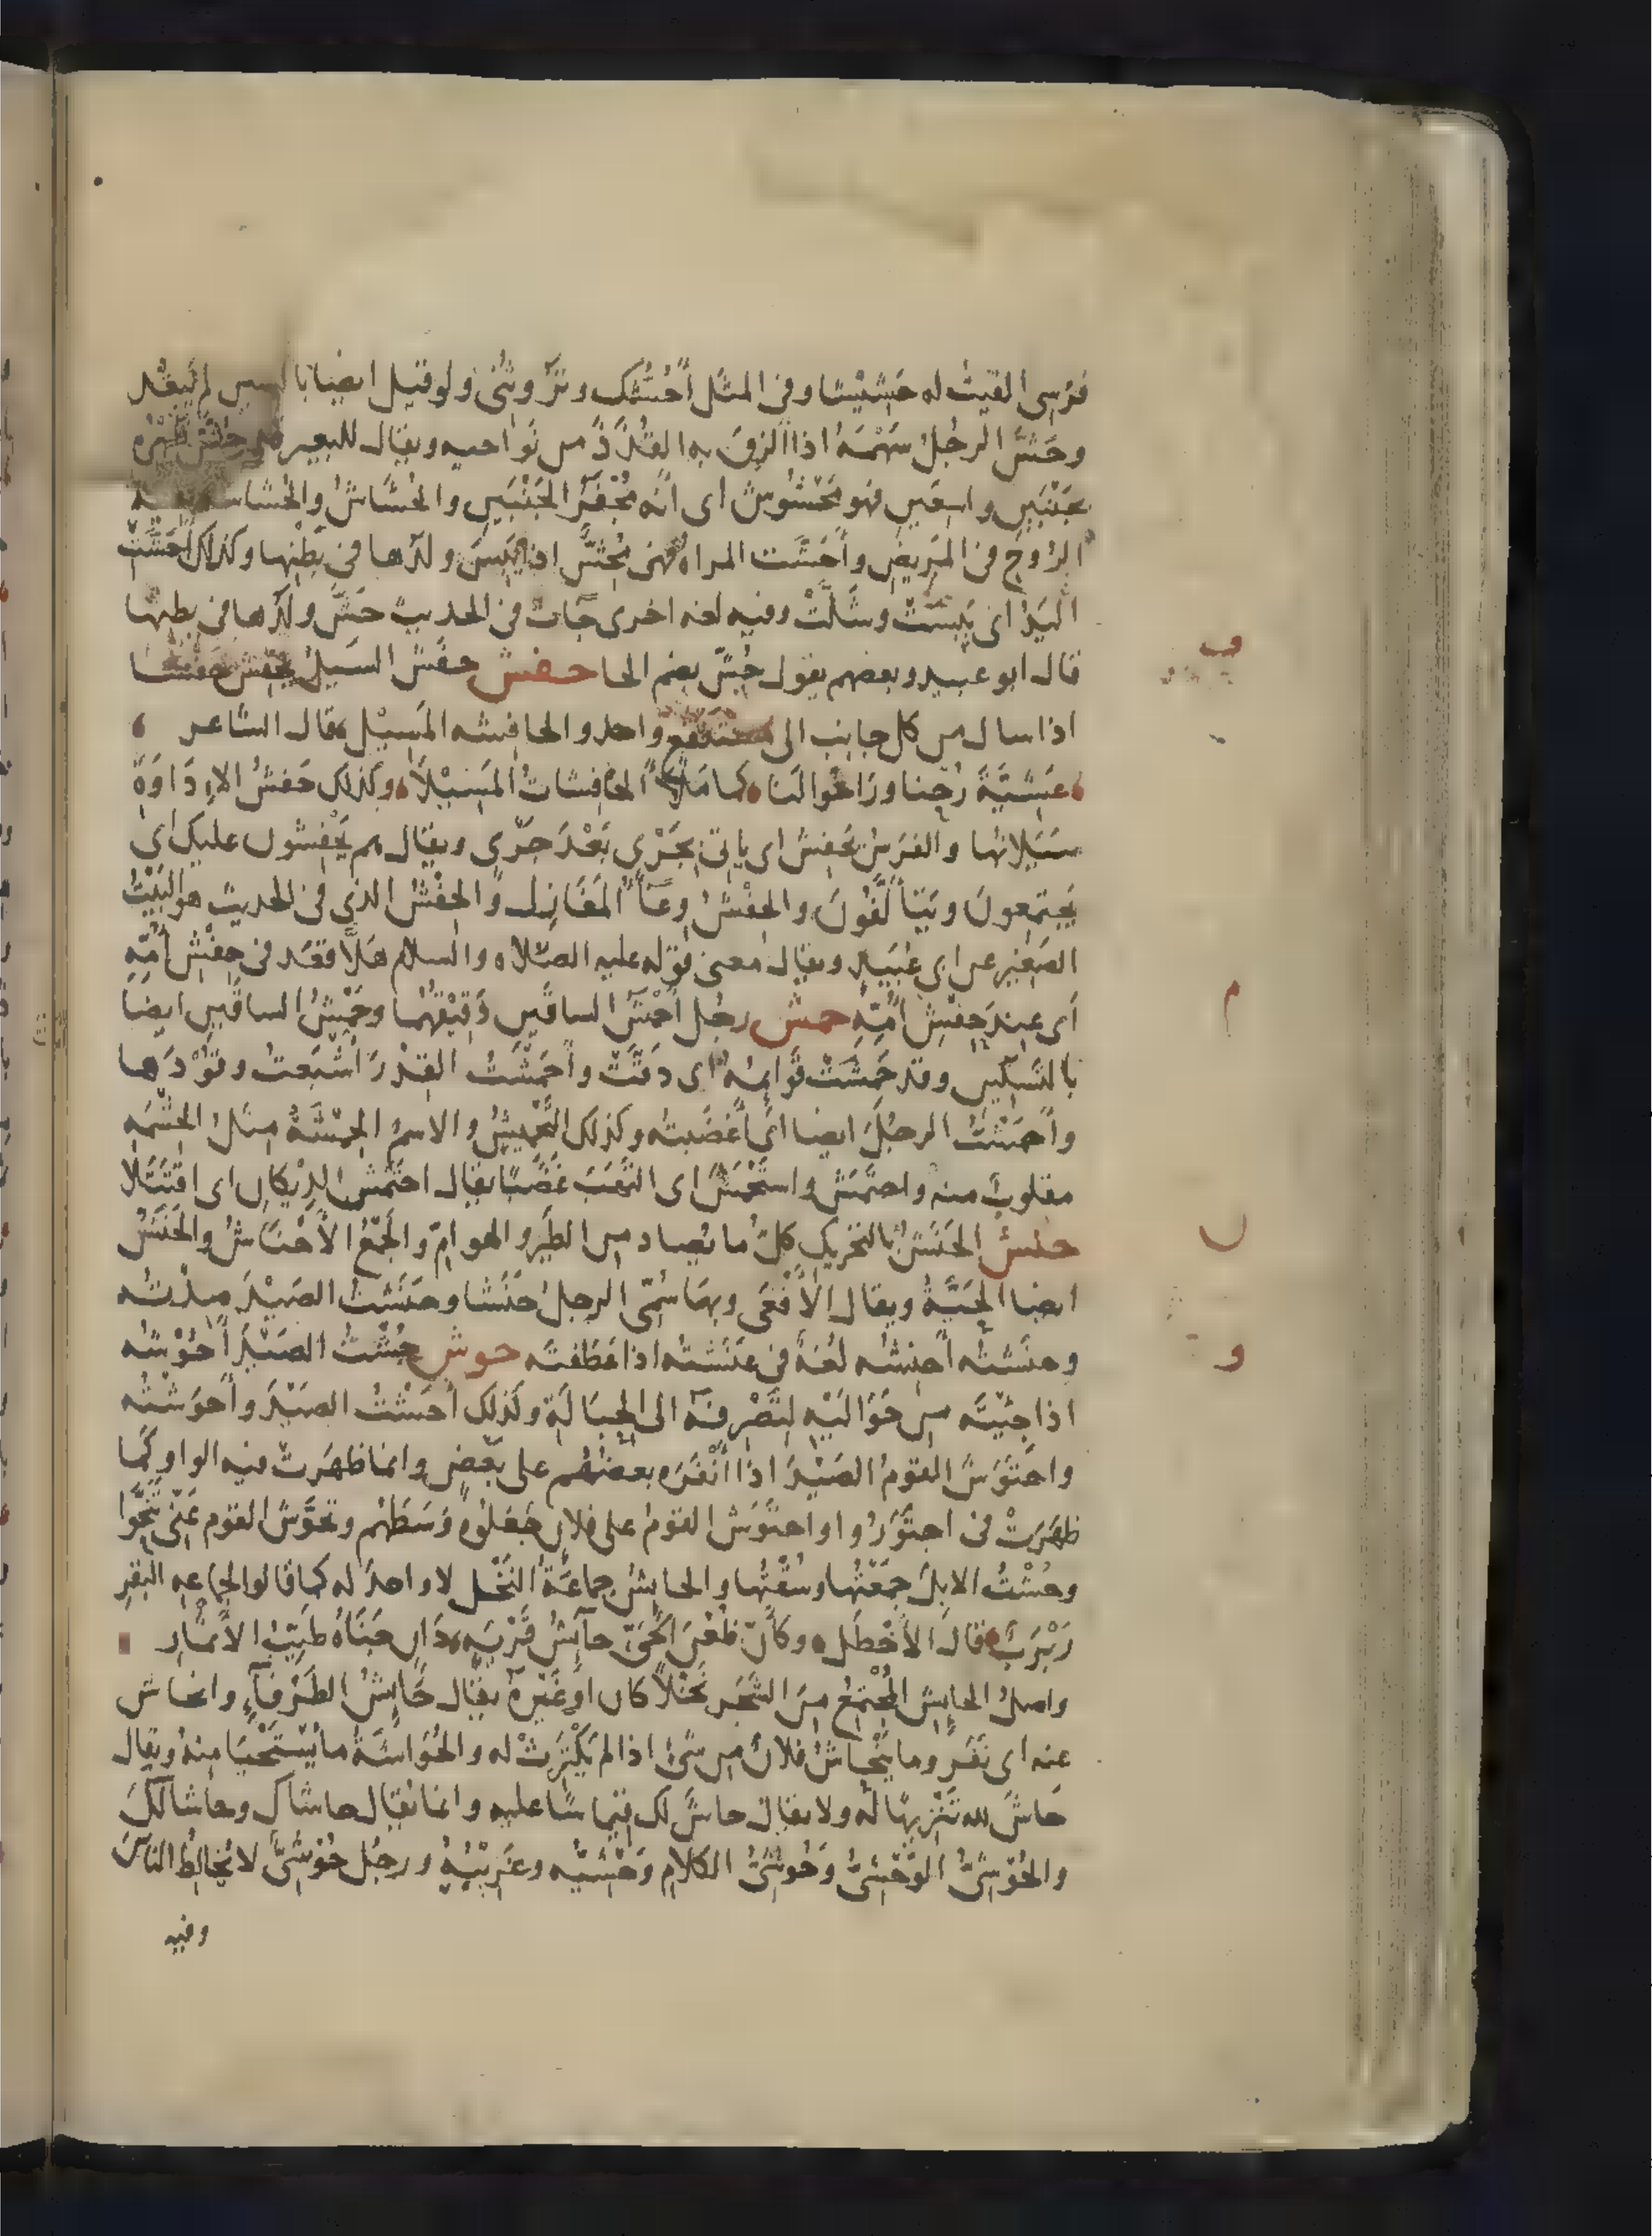 فرسى القيت له حشيشا وفى المثل أحُشُّك وتروثنى ولو قيل ايضا بالسين لم يبعُد
وحَشَّ الرجُلُ سَهْمَهُ اذا الزق به القُذَذَ من نواحيه ويقال للبعير قد حُشَّ ظهْرُه
بجَنْبَين واسعَين فهو مَحْشُوش اى انه مُجْفَرُ الجَنْبَين والحُشَاشُ والحُشاشه بقية
الروح فى المريض وأحَشَّت المراه فهى مُحِشٌّ اذا يَبِسَ ولدُها فى بَطْنِها وكذلك أحَشَّتْ
اليَدُ اى يَبِسَتْ وشَلَّتْ وفيه لغه اخرى جات فى الحديث حَشَّ ولدُها فى بطنها
قال ابو عبيد وبعضهم يقول حُشَّ بضم الحا حفش حفَش السَيلُ يحفِش حَفْشا
اذا سال من كل جانب الى مستنقع واحد والحافشه المَسِيْل قال الشاعر
عَشِيَّةَ رُحْنا ورَاحُوا لنا كما مَلأ الحافِشاتُ المَسِيْلاَ وكذلك حَفشُ الاِدَاوَةِ
سَيَلانُها والفرسُ يَحفِش اى ياتى بجَرْىٍ بَعْدَ جَرْىٍ ويقال هم يَحْفِشون عليك اى
يَجتمعونَ ويَتَألَّفُونَ والحِفْشُ وِعَآءُ المَغَازِل وَالحِفْشُ الذى فى الحديث هو البَيْتُ
الصَغيرُ عن ابى عُبَيدٍ ويقال معنى قوله عليه الصلاه والسلام هَلَّا قعَد فى حِفْشِ أُمِّهِ
اَى عِند حِفْشِ اُمِّهِ حمش رجُل أَحْمَشُ الساقَينِ دَقِيقُهُما وحَمْشُ الساقَينِ ايضا
بالتَسكين وقد حَمِشَتْ قَوايمُهُ اى دَقَّتْ وأَحْمَشْتُ القِدْرَ اَشْبَعتُ وقُوْدَها
وأَحمَشتُ الرجُلَ ايضا اى أَغضَبته وكذلك التَحْمِيشُ والاسمُ الحِمْشَةُ مِثلُ الحِشْمَهِ
مقلوبٌ منه واحتَمَشَ واستَحْمَشَ اى التَهَبَ غَضَبًا يقال احتَمَشَ الدِيكان اى اقتَتَلا
حنش الحَنَشُ بالتحريك كلُّ ما يُصاد من الطَير والهوامّ وَالجَمْعُ الأَحْنَاشُ والحَنَشُ
ايضا الحَيَّةُ ويقال الأَفْعَى وبها سُمِّى الرجلُ حَنَشا وحنَشتُ الصَيْدَ صِدْتُه
وحنَشتُه أحنِشه لُغةٌ فى عَنَشتُه اذا عَطَفتَه حوش حُشْتُ الصَيْدَ أَحُوْشه
اذا جِئْتَه من حَوَالَيْهِ لتَصْرِفَهُ الى الحِبَالَةِ وكذلك أحَشْتُ الصَيْدَ وأَحوَشْتُه
واحتَوَشَ القومُ الصَيْدَ اذا أَنْفَرَه بعضُهُم على بَعضٍ وانما ظهَرَت فيه الواو كَما
ظهَرَتْ فى اجتَوَرُوا واحتَوَشَ القومُ على فلانٍ جَعَلُوهُ وَسَطَهُم وتحوَّشَ القوم عَنِّى تَنَحَّوا
وحُشْتُ الابِلَ جمَعْتُها وسُقْتُها والحايِشُ جماعَةُ النَخْل لا واحدَ له كما قالوا لجماعه البقَرِ
رَبْرَبٌ قال الأَخْطَل وكأَنّ ظُعْنَ الحَىِّ حآيِشُ قَرْيَهٍ دَانٍ جَنَاهُ طَيّبُ الأَثْمَارِ
واصلُ الحايِشِ المُجْتَمِعُ مِنَ الشَجَر نَخْلاً كان أوغَيْرهُ يقال حَايِشُ الطَرْفآءِ وانحَاش
عنه اى نَفَر وما يَنْحاشُ فلانٌ من شىءٍ اذا لم يَكْتَرِثْ له والحُوَاشَةُ ما يُسْتَحْيَا مِنْهُ ويقال
حَاشَ لله تَنْزِيهًا له ولا يقال حاشَ لك قِياسًا عليه وانما يُقال حاشاك وحاشا لَكَ
والحُوْشِىُّ الوَحْشِىُّ وَحُوشِىُّ الكلامِ وَحْشِيُّه وغَرِيبُهُ ورجُل حُوْشِىٌّ لا يُخالِطُ النَاسَ
وفيه
ف
م
ن
و